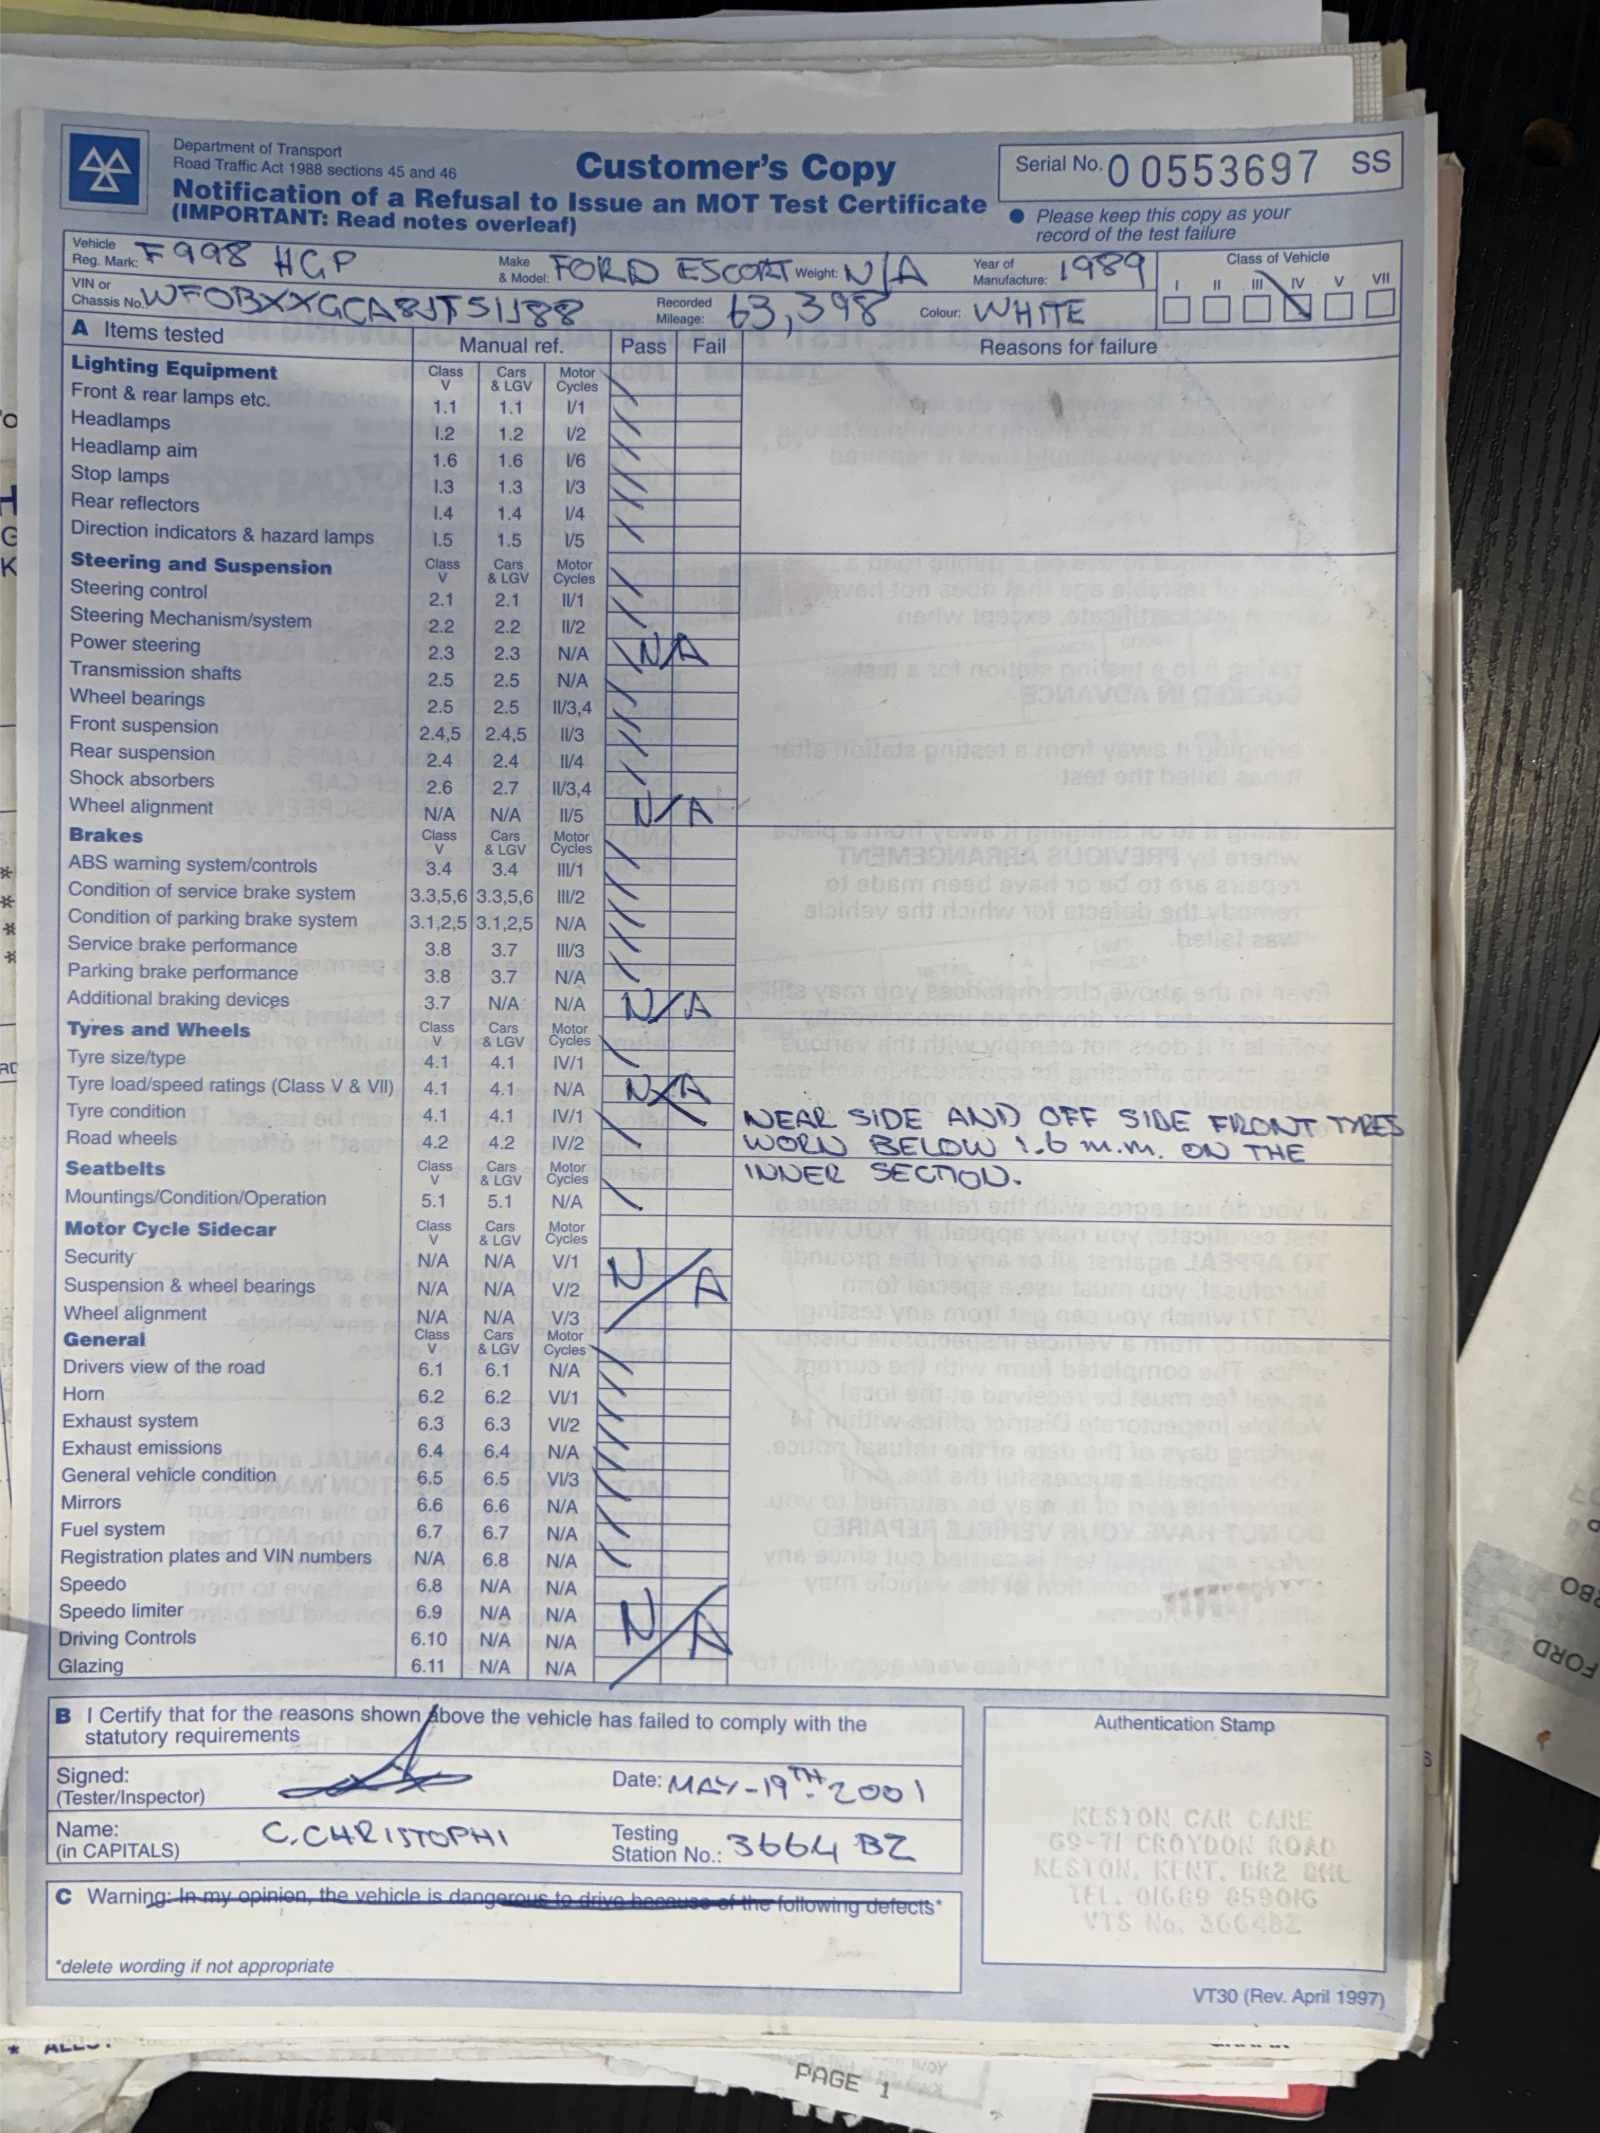 Department of Transport
Road Traffic Act 1988 sections 45 and 46
Customer's Copy
Notification of a Refusal to Issue an MOT Test Certificate
(IMPORTANT: Read notes overleaf)
Serial No. 00553697 SS
Please keep this copy as your
record of the test failure
Vehicle Reg. Mark: F998 HGP Make & Model: FORD ESCORT Weight: N/A Year of Manufacture: 1989 Class of Vehicle
I II III IV V VII
VIN or Chassis No. Recorded Mileage: 63,398 Colour: WHITE
A Items tested Manual ref. Pass Fail Reasons for failure
Lighting Equipment Class V Cars & LGV Motor Cycles
Front & rear lamps etc. 1.1 1.1 I/1
Headlamps 1.2 1.2 I/2
Headlamp aim 1.6 1.6 I/6
Stop lamps 1.3 1.3 I/3
Rear reflectors 1.4 1.4 I/4
Direction indicators & hazard lamps 1.5 1.5 I/5
Steering and Suspension Class V Cars & LGV Motor Cycles
Steering control 2.1 2.1 II/1
Steering Mechanism/system 2.2 2.2 II/2
Power steering 2.3 2.3 N/A N/A
Transmission shafts 2.5 2.5 N/A
Wheel bearings 2.5 2.5 II/3,4
Front suspension 2.4,5 2.4,5 II/3
Rear suspension 2.4 2.4 II/4
Shock absorbers 2.6 2.7 II/3,4
Wheel alignment N/A N/A II/5 N/A
Brakes Class V Cars & LGV Motor Cycles
ABS warning system/controls 3.4 3.4 III/1
Condition of service brake system 3.3,5,6 3.3,5,6 III/2
Condition of parking brake system 3.1,2,5 3.1,2,5 N/A
Service brake performance 3.8 3.7 III/3
Parking brake performance 3.8 3.7 N/A
Additional braking devices 3.7 N/A N/A N/A
Tyres and Wheels Class V Cars & LGV Motor Cycles
Tyre size/type 4.1 4.1 IV/1
Tyre load/speed ratings (Class V & VII) 4.1 4.1 N/A N/A
Tyre condition 4.1 4.1 IV/1 NEAR SIDE AND OFF SIDE FRONT TYRES
Road wheels 4.2 4.2 IV/2 WORN BELOW 1.6 m.m. ON THE
Seatbelts Class V Cars & LGV Motor Cycles INNER SECTION.
Mountings/Condition/Operation 5.1 5.1 N/A
Motor Cycle Sidecar Class V Cars & LGV Motor Cycles
Security N/A N/A V/1 N/A
Suspension & wheel bearings N/A N/A V/2
Wheel alignment N/A N/A V/3
General Class V Cars & LGV Motor Cycles
Drivers view of the road 6.1 6.1 N/A
Horn 6.2 6.2 VI/1
Exhaust system 6.3 6.3 VI/2
Exhaust emissions 6.4 6.4 N/A
General vehicle condition 6.5 6.5 VI/3
Mirrors 6.6 6.6 N/A
Fuel system 6.7 6.7 N/A
Registration plates and VIN numbers N/A 6.8 N/A
Speedo 6.8 N/A N/A
Speedo limiter 6.9 N/A N/A N/A
Driving Controls 6.10 N/A N/A
Glazing 6.11 N/A N/A
B I Certify that for the reasons shown above the vehicle has failed to comply with the
statutory requirements
Signed: (Tester/Inspector) Date: MAY-19TH. 2001
Name: (in CAPITALS) C.CHRISTOPHI Testing Station No.: 3664 BZ
C Warning: In my opinion, the vehicle is dangerous to drive because of the following defects*
*delete wording if not appropriate
Authentication Stamp
KESTON CAR CARE
69-71 CROYDON ROAD
KESTON, KENT. BR2
TEL. 01689 859016
VTS No. 3664BZ
VT30 (Rev. April 1997)
PAGE 1
FORD